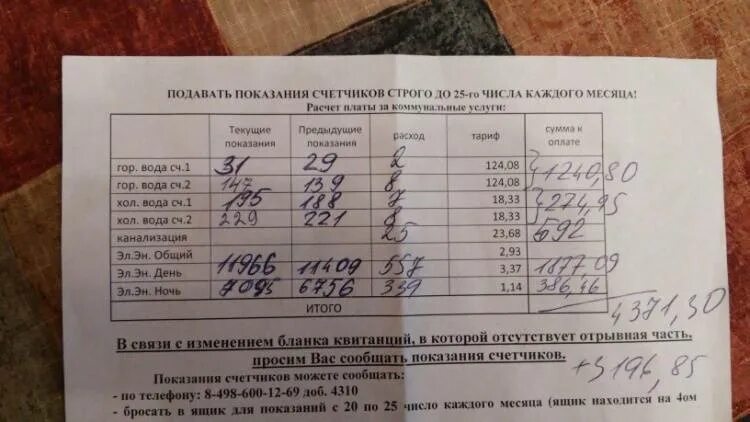 ПОДАВАТЬ ПОКАЗАНИЯ СЧЕТЧИКОВ СТРОГО ДО 25-го ЧИСЛА КАЖДОГО МЕСЯЦА!
Расчет платы за коммунальные услуги:
Текущие показания Предыдущие показания расход тариф сумма к оплате
гор. вода сч.1 31 29 2 124,08
гор. вода сч.2 147 139 8 124,08 1240,80
хол. вода сч.1 195 188 7 18,33
хол. вода сч.2 229 221 8 18,33 274,95
канализация 25 23,68 592
Эл.Эн. Общий 2,93
Эл.Эн. День 11966 11409 557 3,37 1877,09
Эл.Эн. Ночь 7095 6756 339 1,14 386,46
ИТОГО 4371,30
В связи с изменением бланка квитанций, в которой отсутствует отрывная часть,
просим Вас сообщать показания счетчиков.
+3196,85
Показания счетчиков можете сообщать:
- по телефону: 8-498-600-12-69 доб. 4310
- бросать в ящик для показаний с 20 по 25 число каждого месяца (ящик находится на 4ом